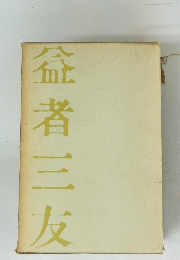 益者三友